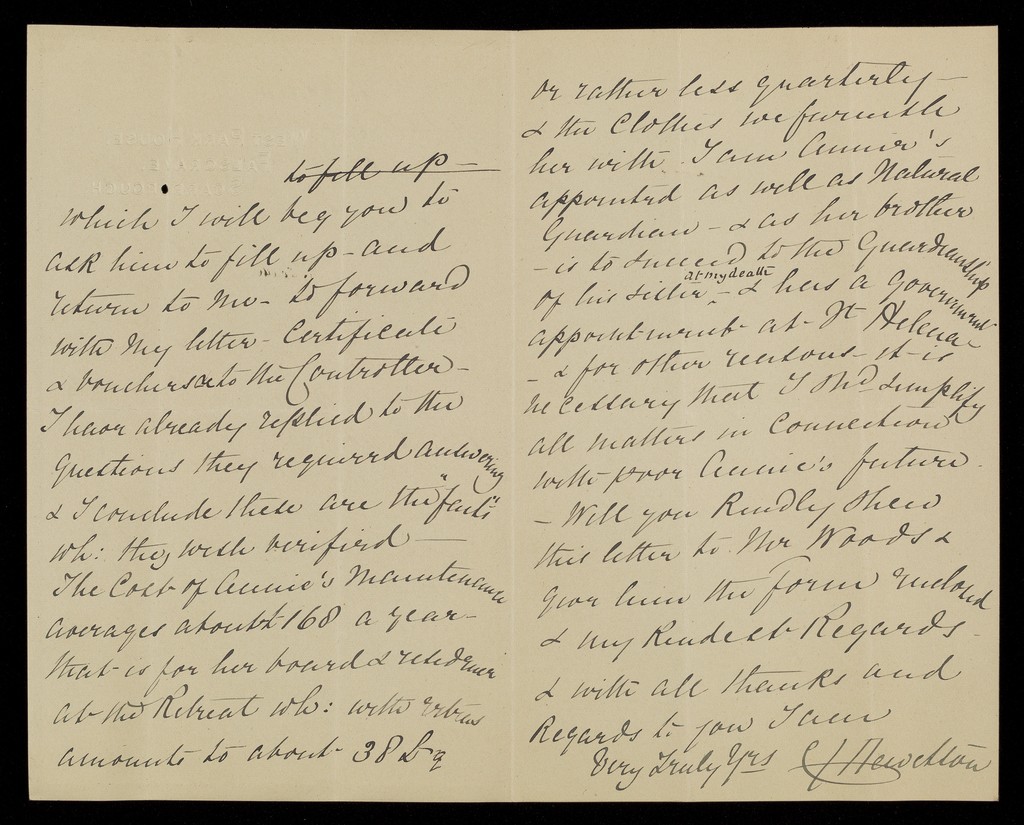 to fill up —
which I will beg you to
ask him to fill up - and
return to me - to forward
with my letter - Certificate
& vouchers to the Controller -
I have already replied to the
questions they required answering
& I conclude these are the "facts"
wh: they wish verified —
The Cost of Annie's Maintenance
averages about £168 a year -
that is for her board & residence
at the Retreat wh: with extras
amounts to about 38£ q
or rather less quarterly —
& the Clothes we furnish
her with. I am Annie's
appointed as well as Natural
Guardian - & as her brother
- is to succeed to the Guardianship
at my death
of his sister - & has a Government
appointment at St Helena -
- & for other reasons - it is
necessary that I shd simplify
all matters in Connection
with poor Annie's future.
- Will you Kindly shew
this letter to Mr Woods &
give him the Form enclosed
& my Kindest Regards -
& with all thanks and
Regards to you I am
Very Truly Yrs Hewetson